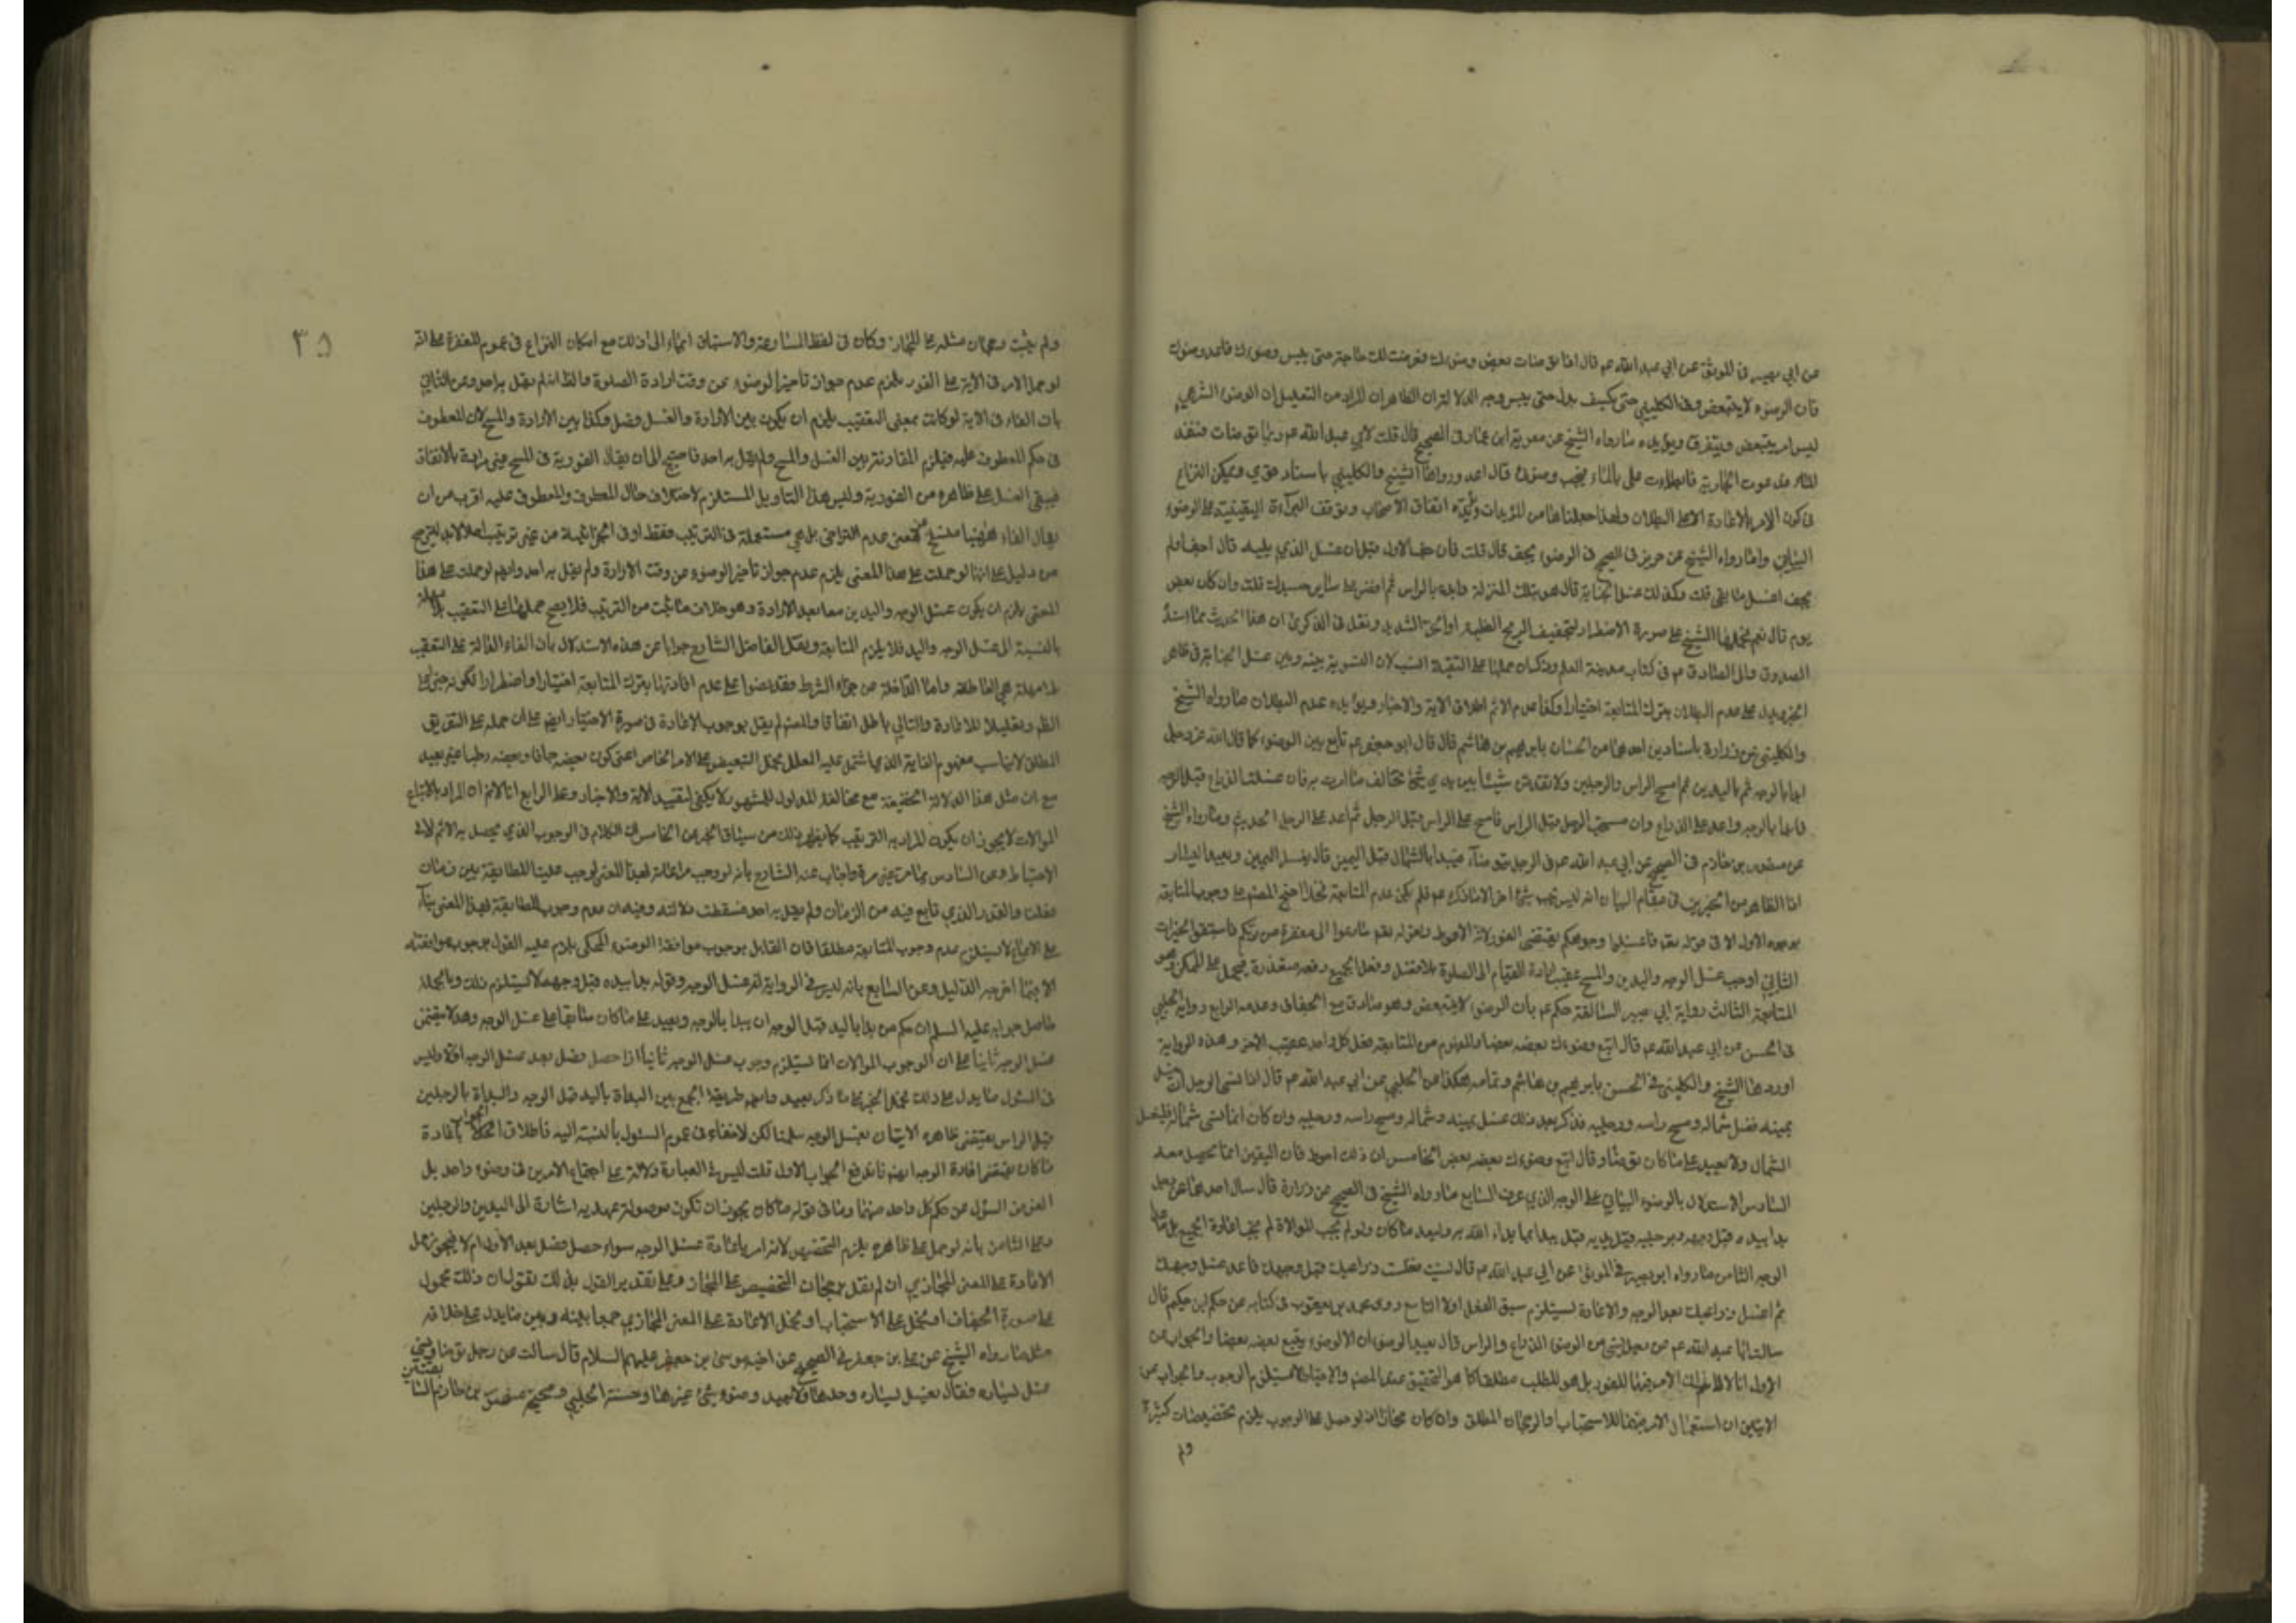 عن ابي بصير في الموثق عن ابي عبد الله عم قال اذا توضات بعض وضوءك فعرضت لك حاجة حتى يبس وضوءك فاعد وضوءك
فان الوضوء لا يتبعض وفي الكليني حتى يبس وجه الدلالة ان الظاهر ان المراد من التعليل ان الوضوء الشرعي
ليس امر يتبعض ويتفرق ويؤيده ما رواه الشيخ عن معوية ابن عمار في الصحيح قال قلت لابي عبد الله عم ربما توضات فنفد
الماء فدعوت الجارية فابطات علي بالماء فيجف وضوئي قال اعد ورواها الشيخ والكليني باسناد قوي ويمكن النزاع
في كون الامر بالاعادة الا على البطلان ولهذا جعلناها من المؤيدات اتفاق الاصحاب وتوقف البراءة اليقينية على الوضوء
البياني واما رواه الشيخ عن حريز في الصحيح في الوضوء يجف قال قلت فان جف الاول قبل ان اغسل الذي يليه قال جف اولم
يجف اغسل ما بقي قلت وكذلك غسل الجنابة قال هو بتلك المنزلة وابدء بالراس ثم افض على سائر جسدك قلت وان كان بعض
يوم قال نعم فحملها الشيخ على صورة الاضطرار لتجفيف الريح العظيمة او الحر الشديد ونقل في الذكرى ان هذا الحديث مما اسنده
الصدوق والى الصادق عم في كتاب مدينة العلم وذكر ان حملها على التقية انسب لان التسوية بينه وبين غسل الجنابة في ظاهر
الخبر يدل على عدم البطلان بترك المتابعة اختيارا وكذا عدم الاثم اطلاق الاية والاخبار ويؤيده عدم البطلان ما رواه الشيخ
والكليني عن زرارة باسنادين احدهما من الحسان بابراهيم بن هاشم قال قال ابو جعفر عم تابع بين الوضوء كما قال الله عز وجل
ابدا بالوجه ثم باليدين ثم امسح الراس والرجلين ولا تقدمن شيئا بين يدي شئ تخالف ما امرت به فان غسلت الذراع قبل الوجه
فابدا بالوجه واعد على الذراع وان مسحت الرجل قبل الراس فامسح على الراس قبل الرجل ثم اعد على الرجل الحديث وما رواه الشيخ
عن منصور بن حازم في الصحيح عن ابي عبد الله عم في الرجل يتوضا فيبدا بالشمال قبل اليمين قال يغسل اليمين ويعيد اليسار
اذا الظاهر من الخبرين في مقام البيان انه ليس يجب شئ اخر الا ما ذكره عم فلم يكن عدم المتابعة مخلا احتج المفيد على وجوب المتابعة
بوجوه الاول الامر في قوله تعم فاغسلوا وجوهكم يقتضي الفور لانه الاحوط ولقوله تعم سارعوا الى مغفرة من ربكم فاستبقوا الخيرات
الثاني اوجب غسل الوجه واليدين والمسح عقيب ارادة القيام الى الصلوة بلا فصل وفعل الجميع دفعة متعذرة فيحمل على الممكن وهو
المتابعة الثالث رواية ابي بصير السالفة حكم عم بان الوضوء لا يتبعض وهو صادق مع الجفاف وعدمه الرابع رواية الحلبي
في الحسن عن ابي عبد الله عم قال اتبع وضوءك بعضه بعضا والمفهوم من المتابعة فعل كل واحد عقيب الاخر وهذه الرواية
اوردها الشيخ والكليني في الحسن بابراهيم بن هاشم وتمامه هكذا عن الحلبي عن ابي عبد الله عم قال اذا نسي الرجل ان يغسل
يمينه فغسل شماله ومسح راسه ورجليه فذكر بعد ذلك غسل يمينه وشماله ومسح راسه ورجليه وان كان انما نسي شماله فليغسل
الشمال ولا يعيد على ما كان توضا وقال اتبع وضوءك بعضه بعض الخامس ان ذلك احوط فان اليقين انما تحصل معه
السادس الاستدلال بالوضوء البياني على الوجه الذي عرفت السابع ما رواه الشيخ في الصحيح عن زرارة قال سال احدهما عن رجل
بدا بيده قبل وجهه وبرجليه قبل يديه قبل يبدا بما بداء الله به وليعد ما كان ولو لم يجب الموالاة لم يجب اعادة الجميع بل
الوجه الثامن ما رواه ابو بصير في الموثق عن ابي عبد الله عم قال نسيت فغسلت ذراعيك قبل وجهك فاعد غسل وجهك
ثم اغسل ذراعيك بعد الوجه والاعادة ليستلزم سبق الفعل اولا التاسع روى محمد بن يعقوب في كتابه عن حكم ابن حكيم قال
سالت ابا عبد الله عم عن رجل نسي من الوضوء الذراع والراس قال يعيد الوضوء ان الوضوء يتبع بعضه بعضا والجواب عن
الاول انا لا نم ان الامر هنا للفور بل هو للطلب مطلقا كما هو التحقيق عند المفيد والاحتياط لا يستلزم الوجوب والجواب عن
الايتين ان استعمال الامر فيهما للاستحباب والرجحان المطلق وان كان مجازا اذ لو حمل على الوجوب يلزم تخصيصات كثيرة
ولم
٣٥
ولم يثبت رجحان مثله على المجاز وكان في لفظ المسارعة والاستباق ايماء الى ذلك مع امكان النزاع في عموم المغفرة على انه
لو حمل الامر في الاية على الفور يلزم عدم جواز تاخير الوضوء عن وقت ارادة الصلوة والظ انه لم يقل به احد وعن الثاني
بان الفاء في الاية لو كانت بمعنى التعقيب يلزم ان يكون بين الارادة والغسل فصل وكذا بين الارادة والمسح لان المعطوف
في حكم المعطوف عليه فيلزم المقارنة بين الغسل والمسح ولم يقل به احد فاحتيج الى ان يقال الفورية في المسح غير مرادة بالاتفاق
فيبقى الغسل على ظاهره من الفورية وليس هذا التاويل المستلزم لاختلاف حال المعطوف والمعطوف عليه اقرب من ان
يقال الفاء ههنا منسلخ عن معنى عدم التراخي بل هي مستعملة في الترتيب فقط او في الجزائية من غير ترتيب اصلا لابد لترجيح
من دليل على انها لو حملت على هذا المعنى يلزم عدم جواز تاخير الوضوء عن وقت الارادة ولم يقل به احد وانهم لو حملت على هذا
المعنى يلزم ان يكون غسل الوجه واليدين معا بعد الارادة وهو خلاف ما ثبت من الترتيب فلا يصح حملها على التعقيب بلا مهلة
بالنسبة الى غسل الوجه واليد فلا يلزم المتابعة ونقل الفاضل الشارح جوابا عن هذه الاستدلال بان الفاء الدالة على التعقيب
بلا مهلة هي العاطفة واما الداخلة على جزاء الشرط فقد نصوا على عدم افادتها بترك المتابعة اختيارا واضطرارا لكونه
الظهر وتعليلا للاعادة والتالي باطل اتفاقا والمفيد لم يقل بوجوب الاعادة في صورة الاختيار ايضا على ان حمله على التفريق
المطلق لا يناسب مفهوم الغاية الذي اشتمل عليه المعلل بحمل التبعيض على الامر الخاص اعني كون بعضه جافا وبعضه رطبا غير بعيد
مع ان مثل هذا الدلالة الخفيفة مع مخالفة المدلول للمشهور لا يكفي لتقييد الاية والاخبار وعن الرابع انا لانم ان المراد بالاتباع
الموالات لا يجوز ان يكون المراد به الترتيب كما يظهر ذلك من سياق الخبر عن الخامس ان الكلام في الوجوب الذي يحصل به الاثم لا في
الاحتياط وعن السادس بما مر غير مرة واجاب عنه الشارح بانه لو وجب مراعاة لهذا المعنى لوجب علينا المطابقة بين زمان
فعلنا والقدر الذي تابع فيه من الزمان ولم يقل به احد فسقطت دلالته وفيه ان عدم وجوب المطابقة لهذا المعنى بناء
على الاجماع لا يستلزم عدم وجوب المتابعة مطلقا فان القائل بوجوب موافقة الوضوء المحكي يلزم عليه القول بوجوب موافقته
الا ما اخرجه الدليل وعن السابع بانه ليس في الرواية انه غسل الوجه وقوله بدا بيده قبل وجهه لا يستلزم ذلك وبالجملة
حاصل جوابه عليه السلم ان حكم من بدا باليد قبل الوجه ان يبدا بالوجه ويعيد على ما كان سابقا على غسل الوجه وهذا لا يقتضي
غسل الوجه ثانيا على ان الوجوب الموالات انما يستلزم وجوب غسل الوجه ثانيا اذا حصل فصل بعد غسل الوجه اولا وليس
في السئول ما يدل على ذلك فحمل الخبر على ما ذكر بعيد وايضا طريقة الجمع بين البداة باليد قبل الوجه والبداة بالرجلين
قبل الراس يقتضي ظاهره الاتيان بغسل الوجه سلمنا لكن لاخفاء في عموم السئول بالنسبة اليه فاطلاق الجواب باعادة
ما كان يقتضي اعادة الوجه ايضا فاندفع الجواب الاول قلت ليس في العبارة دلالة على اجتماع الامرين في وضوء واحد بل
الغرض السؤل عن حكم كل واحد منهما وما في قوله ما كان يجوز ان تكون موصولة عهدية اشارة الى اليدين والرجلين
وعلى الثامن بانه لو حمل على ظاهره يلزم التخصيص لانه امر باعادة غسل الوجه سواء حصل فصل بعد الاول ام لا فيجوز حمل
الاعادة على المعنى المجازي ان لم نقل برجحان التخصيص على المجاز وعلى تقدير القول بذلك نقول ان ذلك محمول
على صورة الجفاف او يحمل على الاستحباب او يحمل الاعادة على المعنى المجازي جمعا بينه وبين ما يدل على خلافه
مثل ما رواه الشيخ عن علي بن جعفر في الصحيح عن اخيه موسى بن جعفر عليهم السلام قال سالت عن رجل توضا ونسي
غسل يساره فقال يغسل يساره وحدها ولا يعيد وضوء شئ غيرها وحسنة الحلبي وصحيحة منصور بن حازم